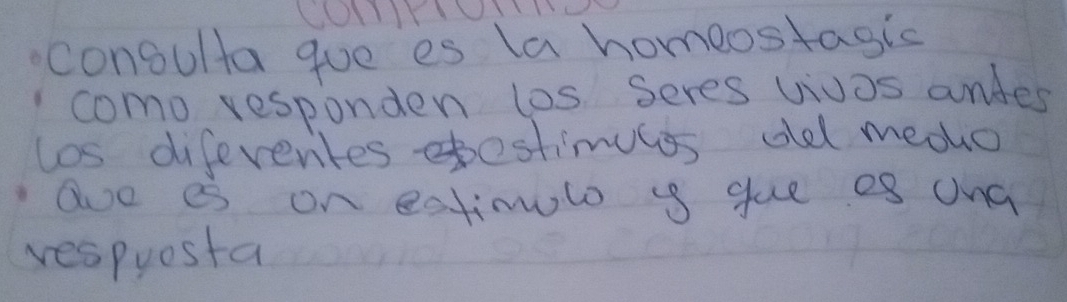 compromiso
•consulta que es la homeostasis
• como responden los seres vivos antes
los diferentes estimulos del medio
• Que es un estimulo y que es una
respuesta